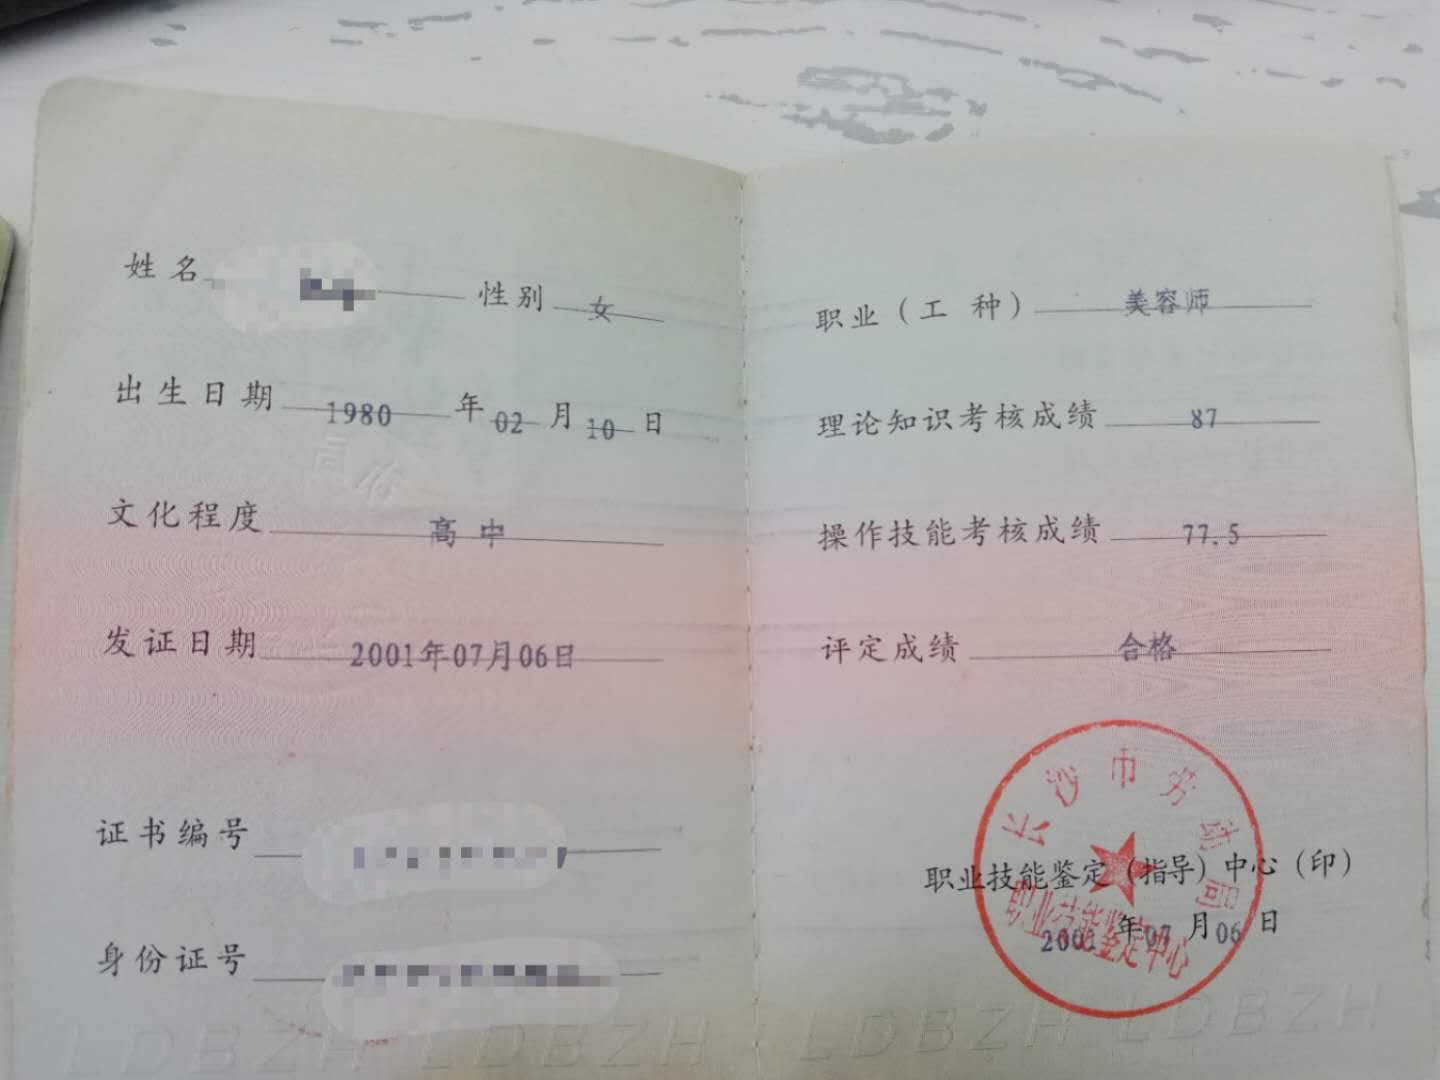 姓名 性别 女
出生日期 1980 年 02 月 10 日
文化程度 高中
发证日期 2001年07月06日
证书编号
身份证号
LDBZH LDBZH
职业（工 种） 美容师
理论知识考核成绩 87
操作技能考核成绩 77.5
评定成绩 合格
长沙市劳动局
职业技能鉴定（指导）中心（印）
职业技能鉴定中心
2001 年 07 月 06 日
LDBZH LDBZH